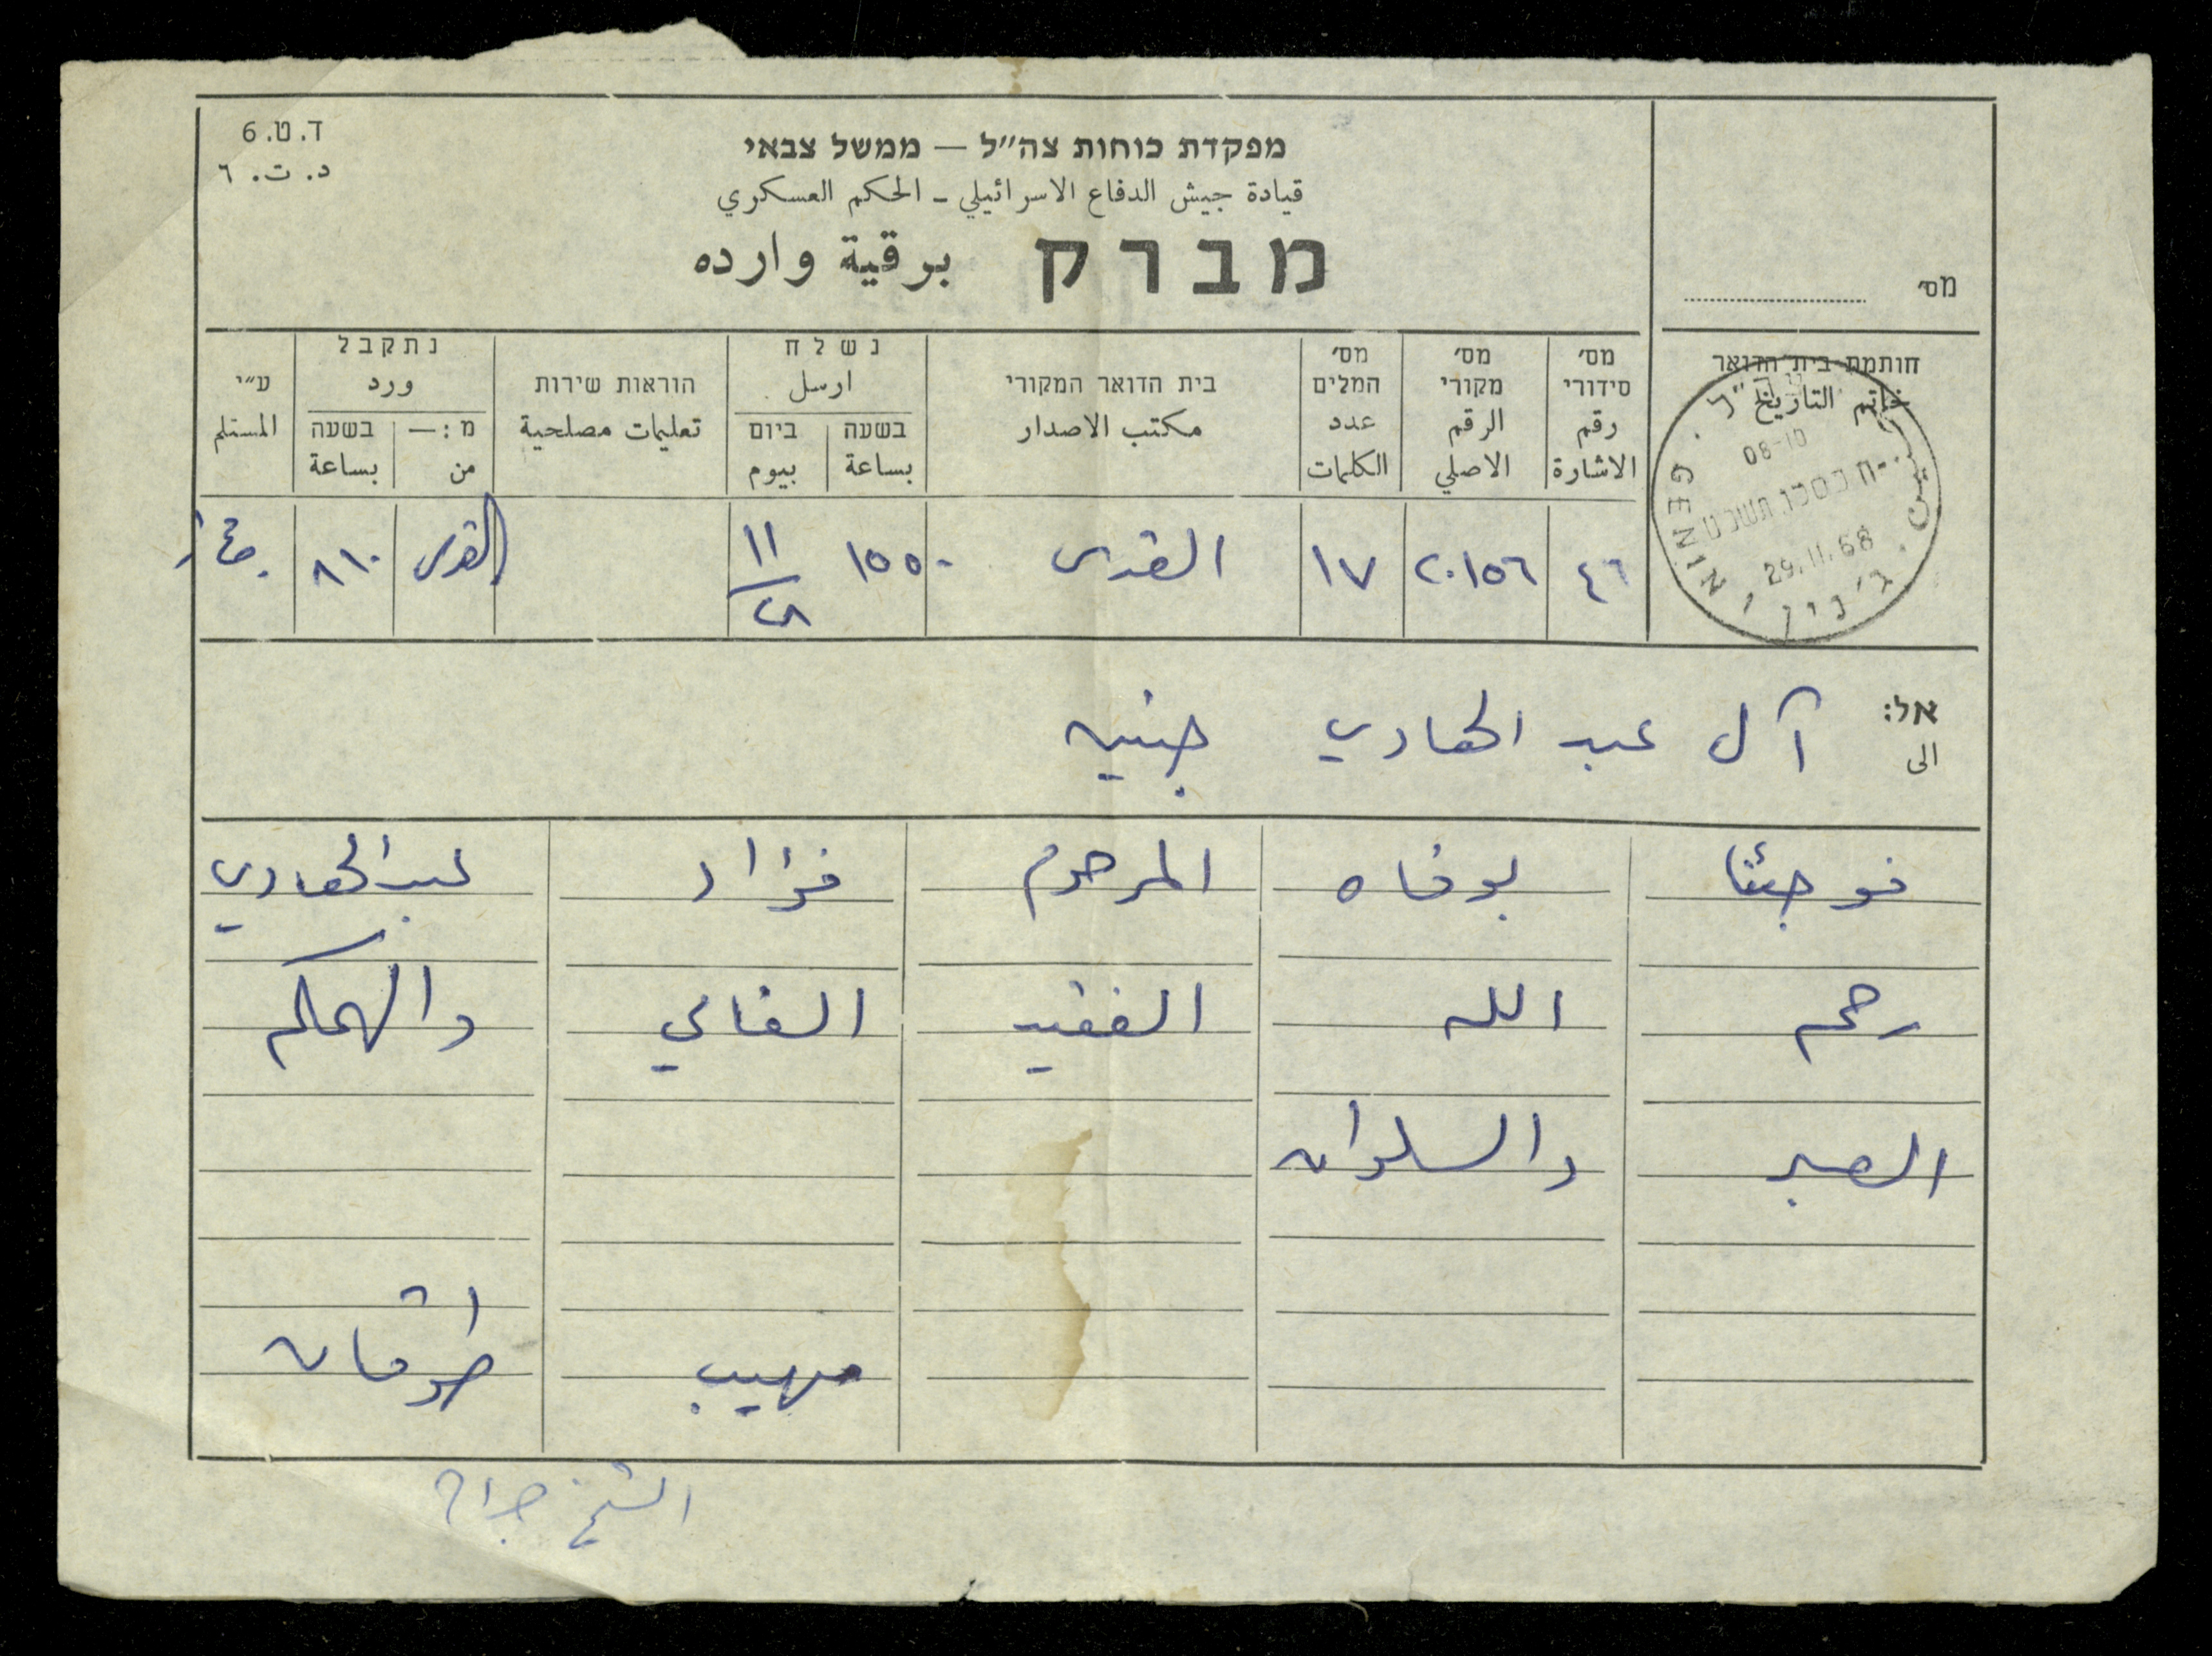 ד.ט.6
د. ت. ٦
מפקדת כוחות צה״ל — ממשל צבאי
قيادة جيش الدفاع الاسرائيلي ـ الحكم العسكري
מברק برقية وارده
מס׳
חותמת בית הדואר
خاتم التاريخ
08-10
29.11.68
GENIN
جنين
ג׳נין
מס׳ סידורי
رقم الاشارة
מס׳ מקורי
الرقم الاصلي
מס׳ המלים
عدد الكلمات
בית הדואר המקורי
مكتب الاصدار
נשלח
ارسل
בשעה
بساعة
ביום
بيوم
הוראות שירות
تعليمات مصلحية
נתקבל
ورد
מ:—
من
בשעה
بساعة
ע״י
المستلم
٤٦ ٢٠١٥٦ ١٧ القدس ١٥٥٠ ١١/٢٨ القدس ٨١٠
אל:
الى
آل عبد الهادي جنين
فوجئنا بوفاه المرحوم فؤاد عبد الهادي
رحم الله الفقيد الغالي والهمكم
الصبر والسلوان
مهيب
الشيخ جراح